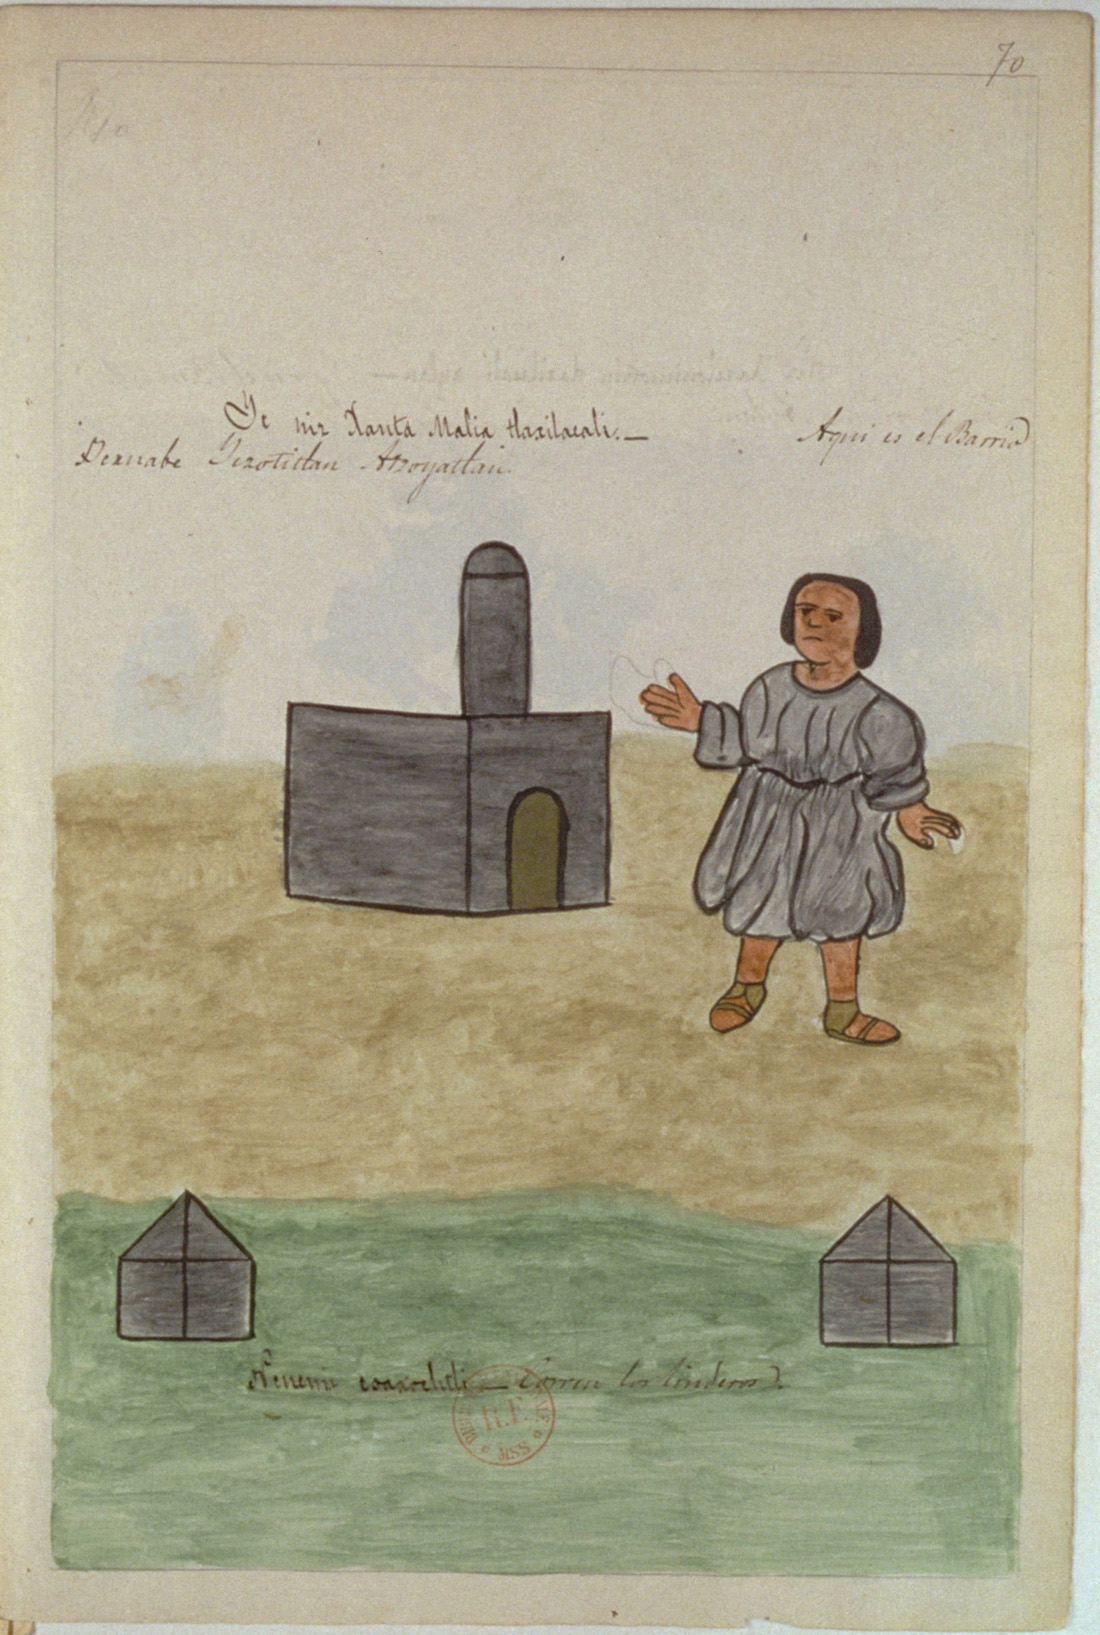 70
Yc niz Xanta Malia tlaxilacali.— Aqui es el Barrio
Yezotitlan Atzoyatlan.
Nenemi coaxochtli — Corren los linderos.
R.F.
MSS